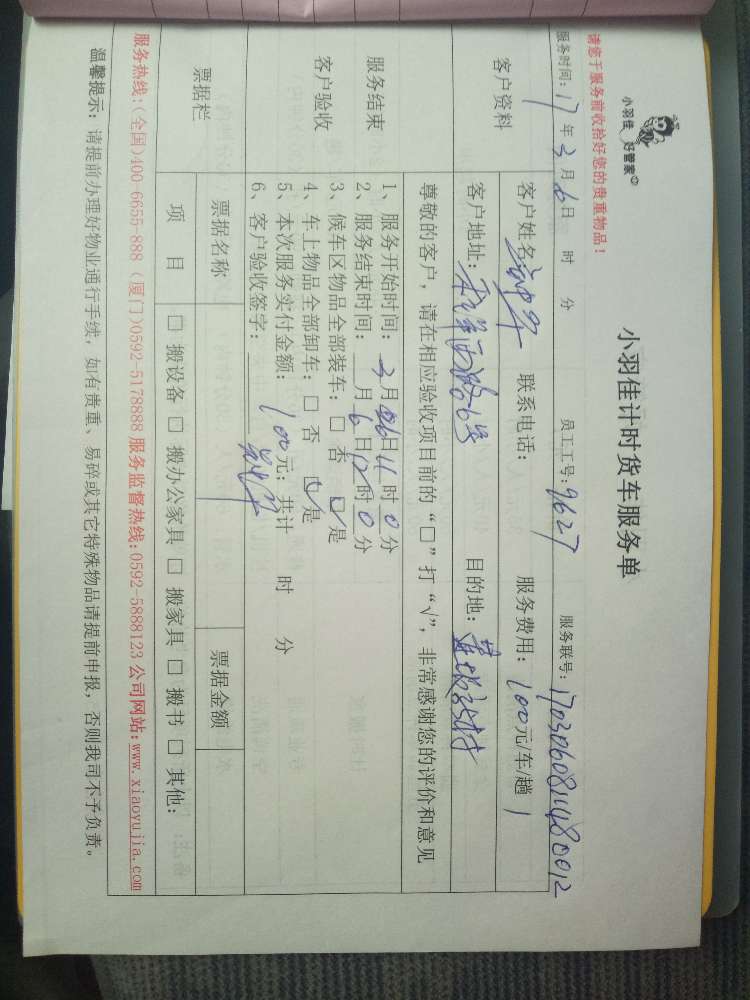 小羽佳 好管家
小羽佳计时货车服务单
请您于服务前收拾好您的贵重物品！
服务时间：17年3月6日 时 分 员工工号：9627 服务联号：
客户资料
客户姓名 联系电话： 服务费用：100元/车/趟 1
客户地址： 目的地：
尊敬的客户，请在相应验收项目前的“□”打“√”，非常感谢您的评价和意见
服务结束
客户验收
1、服务开始时间：3月6日11时0分
2、服务结束时间： 月6日12时0分
3、候车区物品全部装车：□ 否 ☑是
4、车上物品全部卸车：□ 否 ☑是
5、本次服务实付金额：100元；共计 时 分
6、客户验收签字：
票据栏
票据名称 票据金额
项 目 □ 搬设备 □ 搬办公家具 □ 搬家具 □ 搬书 □ 其他：
服务热线：(全国)400-6655-888 (厦门)0592-5178888 服务监督热线：0592-5888123 公司网站：www.xiaoyujia.com
温馨提示：请提前办理好物业通行手续，如有贵重、易碎或其它特殊物品请提前申报，否则我司不予负责。